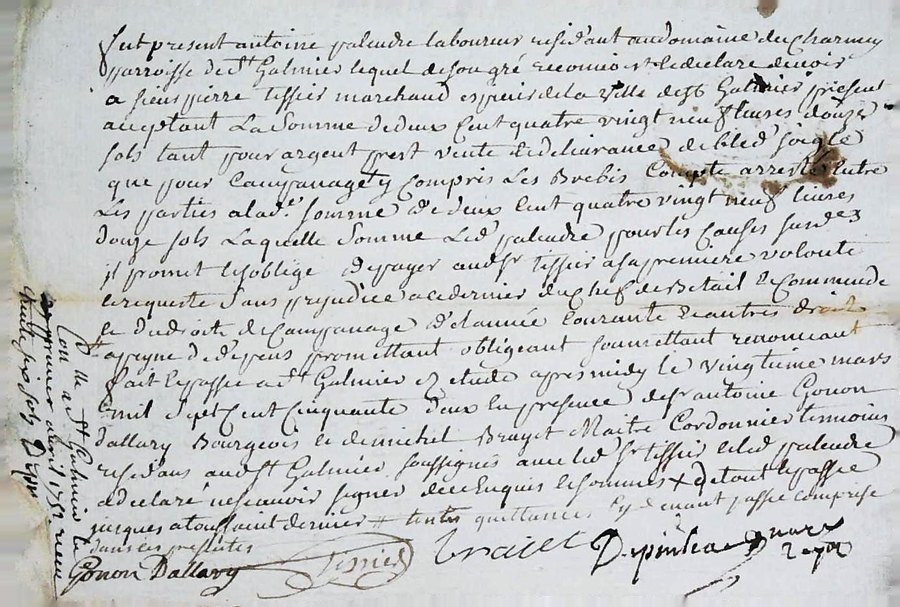 fut present antoine palendre laboureur residant audomaine du Charmey
parroisse de St Galmier lequel desongré reconnoist & declare devoir
a sieur pierre tissier marchand espicier dela ville de St Galmier present
acceptant La Somme de deux Cent quatre vingt neuf livres douze
sols tant pour argent prest vente & delivrance de bled soigle
que pour Campanage y compris Les Brebis Compte arresté Entre
Les parties a lad.e somme de deux Cent quatre vingt neuf livres
douze sols Laquelle Somme Led palendre pour les Causes susd.es
il promet & soblige de payer aud Sr tissier a sa premiere volonté
& requeste Sans prejudice a ce dernier du Chef de Betail & Commande
& du droit de Campanage de lannée Courante & autres droits
a peyne de depens promettant obligeant soumettant renonceant
fait & passé a St Galmier etude apres midy le vingtieme mars
mil Sept Cent Cinquante deux En presence de sr antoine Gonon
Dallary Bourgeois & de michel Brayet Maitre Cordonnier temoins
residans aud St Galmier soussignés avec led Sr tissier & led palendre
a declaré ne scavoir signer de ce Enquis & sommés & de tout le passé
jusques a toussaint dernier # toutes quittances cy devant passé comprise
dans ces presentes
Gonon Dallary Tissier brayet
Con.lle a St Galmier le
premier avril 1752 reçu